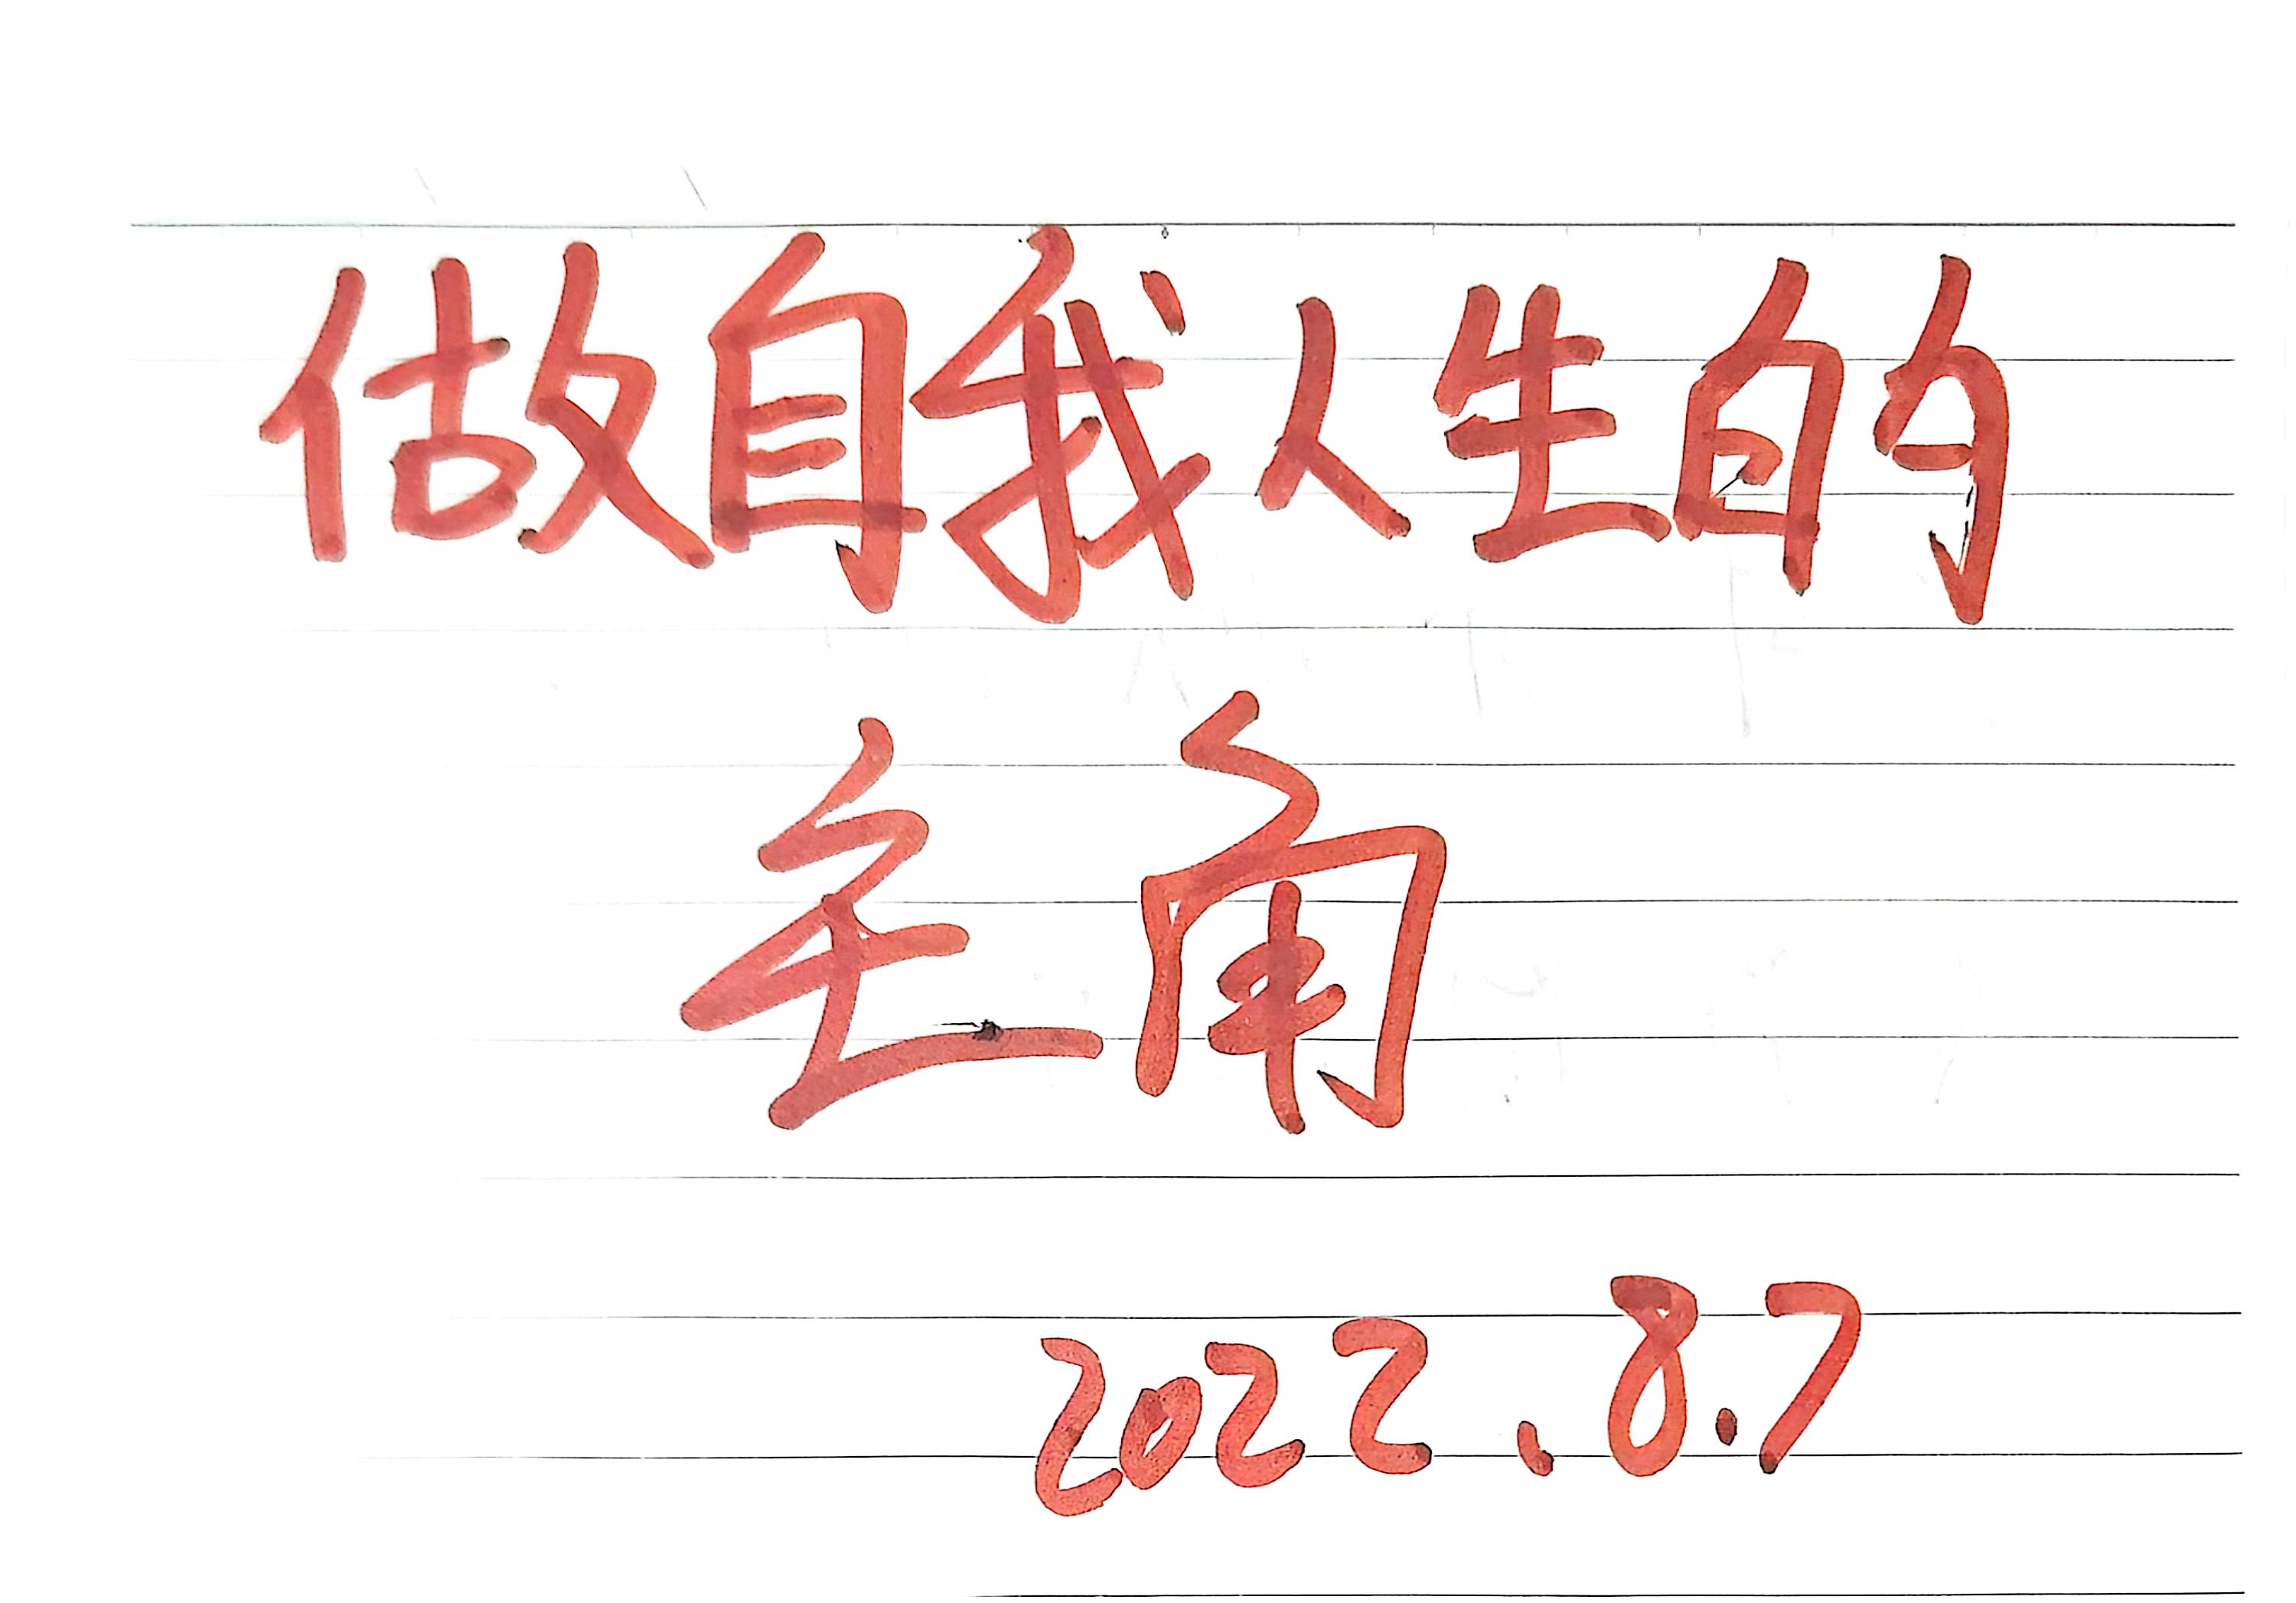 做自我人生的
主角
2022.8.7